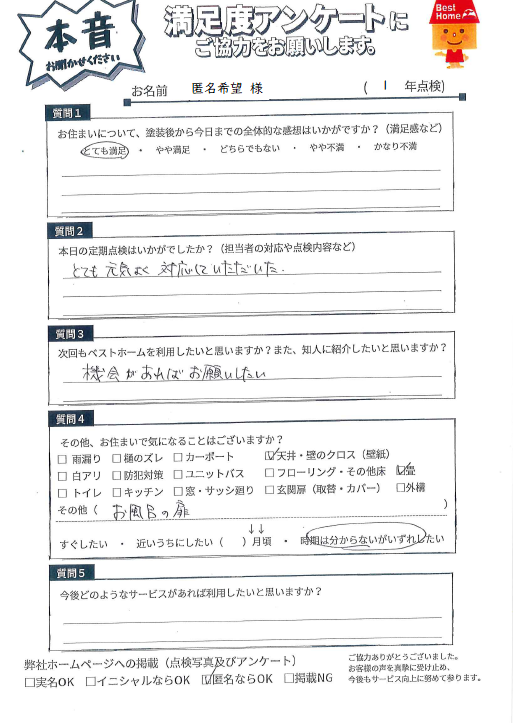 本音
お聞かせください
満足度アンケートに
ご協力をお願いします。
Best
Home
お名前 匿名希望 様 ( 1 年点検)
質問1
お住まいについて、塗装後から今日までの全体的な感想はいかがですか？（満足感など）
とても満足 ・ やや満足 ・ どちらでもない ・ やや不満 ・ かなり不満
質問2
本日の定期点検はいかがでしたか？（担当者の対応や点検内容など）
とても元気よく対応していただいた.
質問3
次回もベストホームを利用したいと思いますか？また、知人に紹介したいと思いますか？
機会があればお願いしたい
質問4
その他、お住まいで気になることはございますか？
□ 雨漏り □ 樋のズレ □ カーポート ☑ 天井・壁のクロス（壁紙）
□ 白アリ □ 防犯対策 □ ユニットバス □ フローリング・その他床 ☑ 畳
□ トイレ □ キッチン □ 窓・サッシ廻り □ 玄関扉（取替・カバー） □ 外構
その他（ お風呂の扉 ）
↓↓
すぐしたい ・ 近いうちにしたい（ ）月頃 ・ 時期は分からないがいずれしたい
質問5
今後どのようなサービスがあれば利用したいと思いますか？
弊社ホームページへの掲載（点検写真及びアンケート）
□実名OK □イニシャルならOK ☑匿名ならOK □掲載NG
ご協力ありがとうございました。
お客様の声を真摯に受け止め、
今後もサービス向上に努めて参ります。